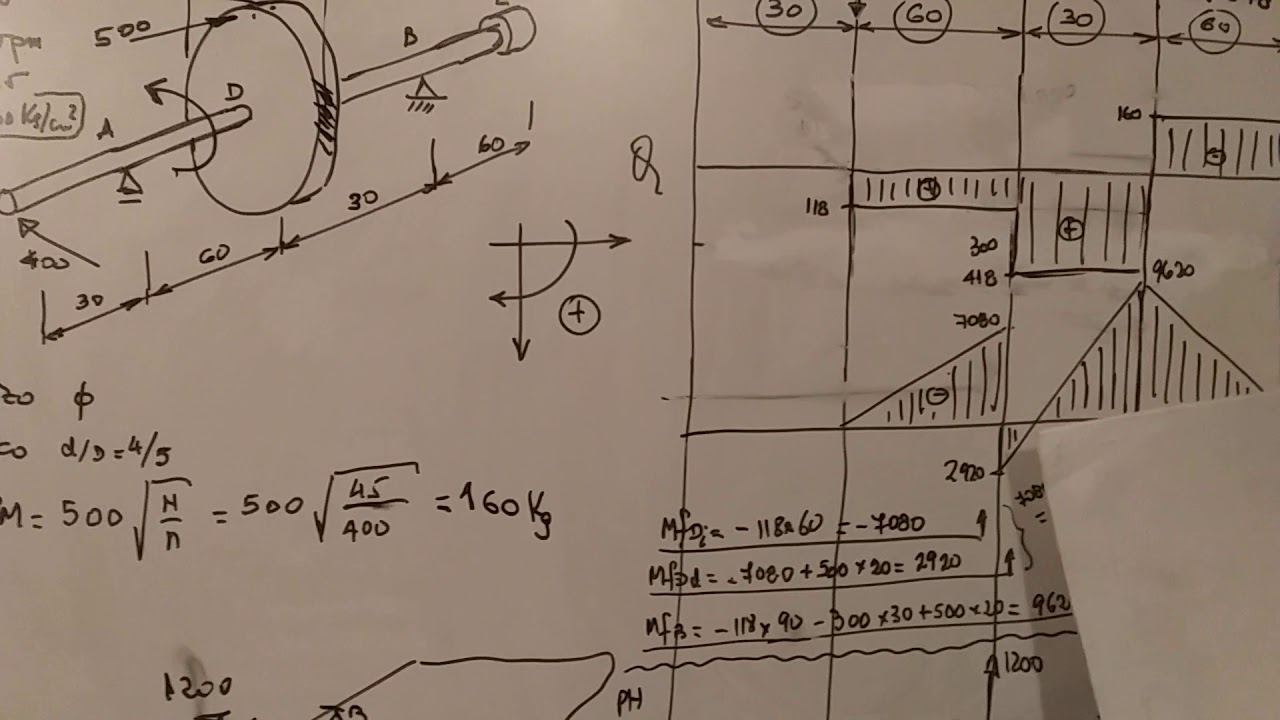 rpm
500
Kg/cm²
A
D
B
400
30
60
30
60
+
φ
d/D = 4/5
M = 500 √N/n = 500 √45/400 = 160 Kg
1200
B
30
60
30
60
Q
160
118
+
-
+
300
418
9620
7080
-
2920
MfDi = - 118 x 60 = - 7080
MfDd = - 7080 + 500 x 20 = 2920
MfB = - 118 x 90 - 300 x 30 + 500 x 20 = 962
PH
1200